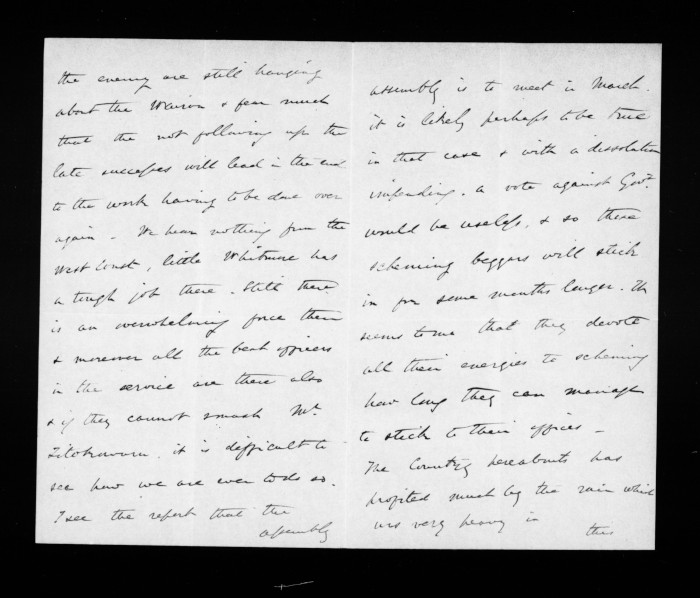 the enemy are still hanging
about the Wairoa & fear much
that the not following up the
late successes will lead in the end
to the work having to be done over
again. We hear nothing from the
West Coast, little Whitmore has
a tough job there. Still there
is an overwhelming force there
& moreover all the best officers
in the service are there also
& if they cannot smash Mr.
Titokowaru. it is difficult to
see how we are ever to do so.
I see the report that the
assembly
assembly is to meet in March.
it is likely perhaps to be true
in that case & with a dissolution
impending. a vote against Govt.
would be useless, & so these
scheming beggars will stick
in for some months longer. It
seems to me that they devote
all their energies to scheming
how long they can manage
to stick to their offices —
The Country hereabouts has
profited much by the rain which
was very heavy in this